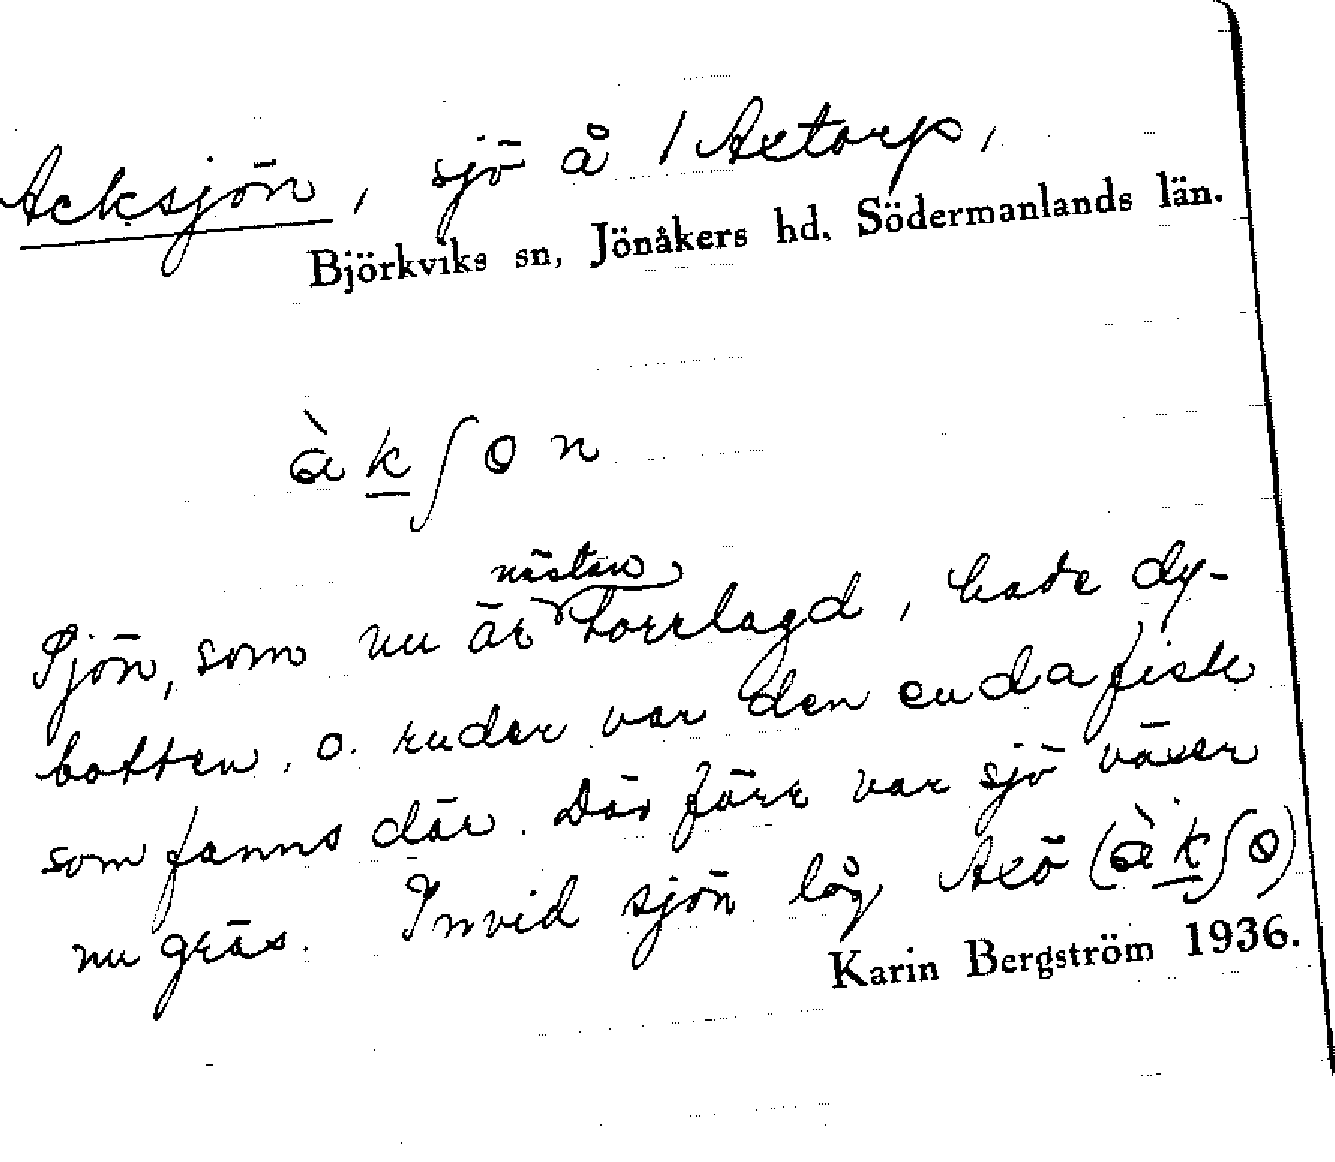 Acksjön, sjö å / Axtorp,
Björkviks sn, Jönåkers hd, Södermanlands län.
àkʃɵn
nästan
Sjön, som nu är torrlagd, hade dy-
botten. o. ruder var den enda fisk
som fanns där. Där förr var sjö växer
nu gräs. Invid sjön låg Axö (àkʃɵ)
Karin Bergström 1936.